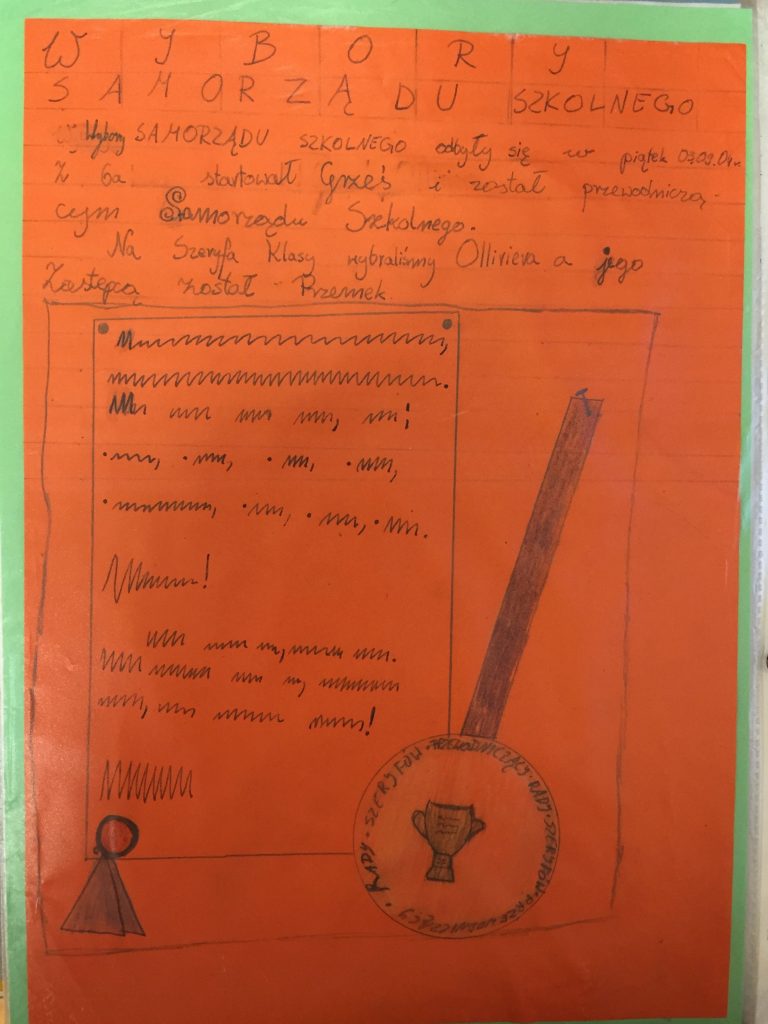 WYBORY
SAMORZĄDU SZKOLNEGO
Wybory SAMORZĄDU SZKOLNEGO odbyły się w piątek 03.09.04r.
Z 6a startował Grześ i został przewodniczą-
cym Samorządu Szkolnego.
Na Szeryfa Klasy wybraliśmy Olliviera a jego
Zastępcą został Przemek
RADY · SZERYFÓW · PRZEWODNICZĄCY · RADY · SZERYFÓW · PRZEWODNICZĄCY ·